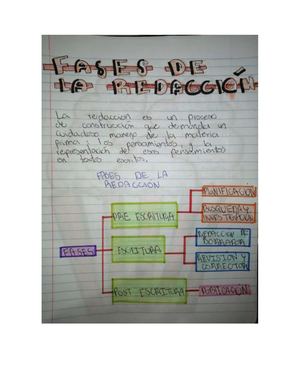 FASES DE
LA REDACCIÓN
La redacción es un proceso
de construcción que demanda un
cuidadoso manejo de la materia
prima; los pensamientos, y la
representación de esos pensamientos
en textos escritos.
FASES DE LA
REDACCION
PLANIFICACION
PRE ESCRITURA
BUSQUEDA Y
FASES
ESCRITURA
REDACCION DE
BORRADOR
REVISION Y
CORRECCION
POST ESCRITURA
PUBLICACION